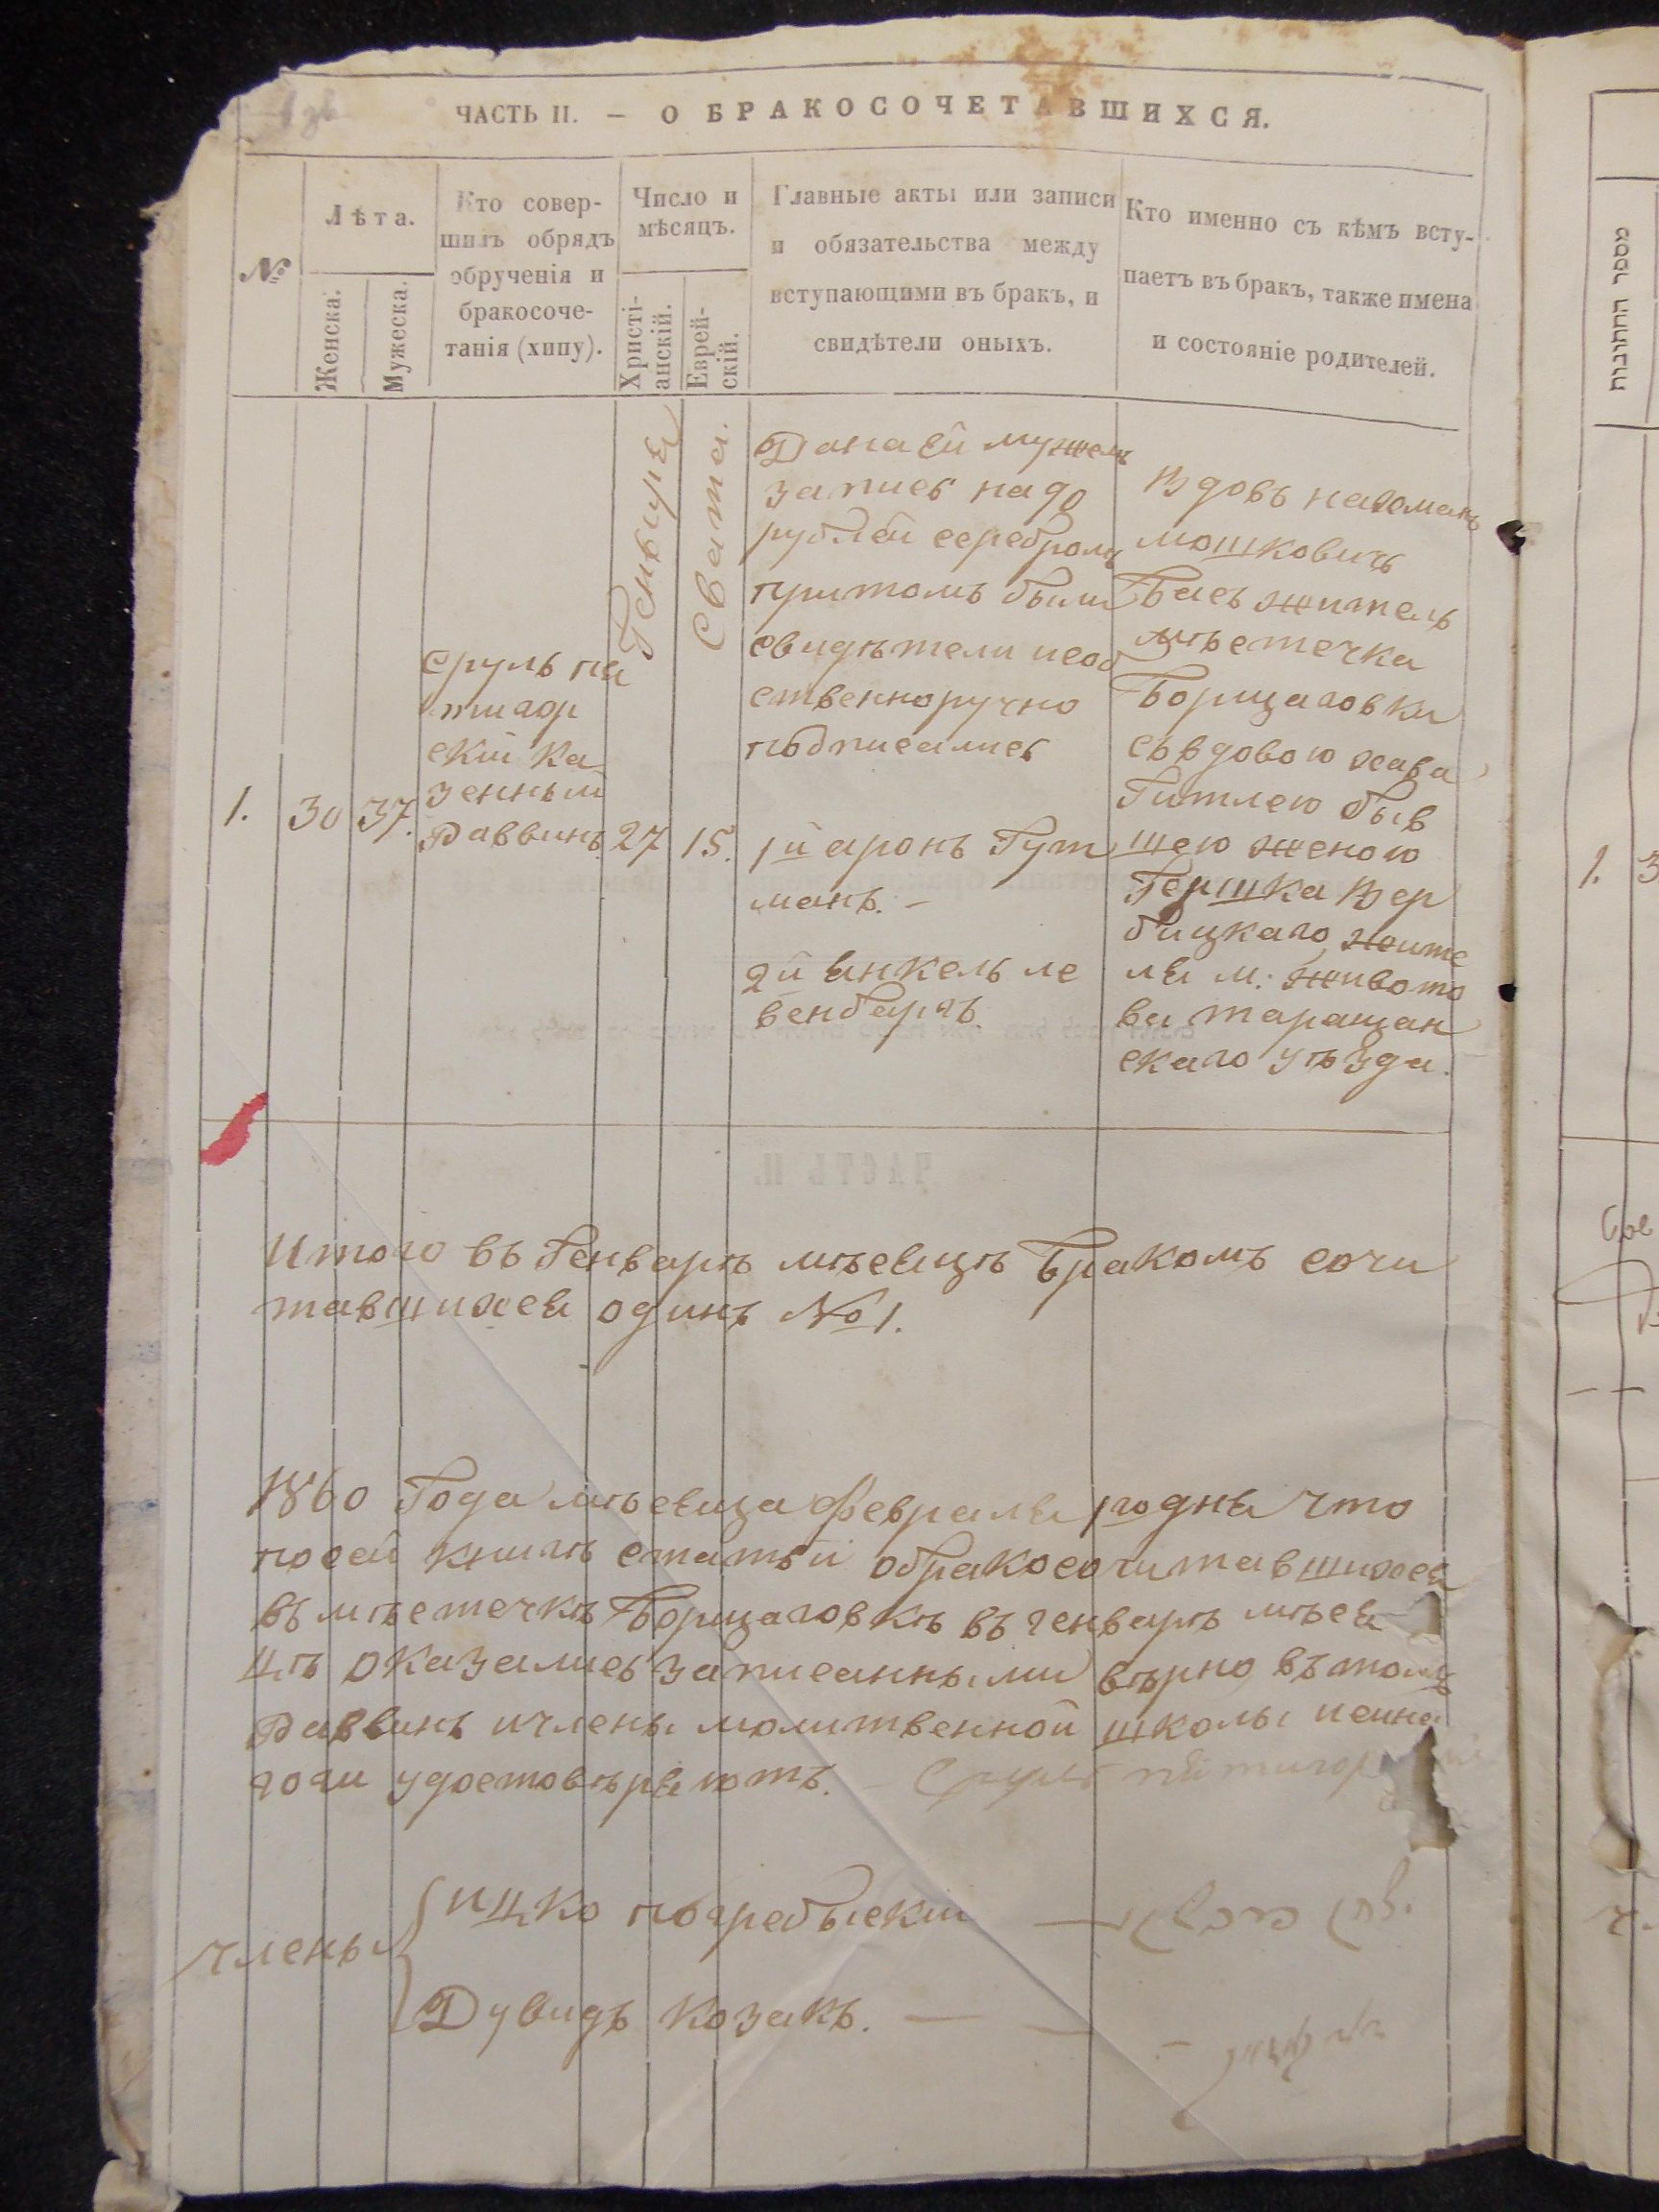 ЧАСТЬ II. — О БРАКОСОЧЕТАВШИХСЯ.
№
Лѣта.
Женска.
Мужеска.
Кто совер-
шилъ обрядъ
обрученія и
бракосоче-
танія (хипу).
Число и
мѣсяцъ.
Христі-
анскій.
Еврей-
скій.
Главные акты или записи
и обязательства между
вступающими въ бракъ, и
свидѣтели оныхъ.
Кто именно съ кѣмъ всту-
паетъ въ бракъ, также имена
и состояніе родителей.
1.
30
37.
Сруль пя
тигор
скій ка
зенный
Раввинъ.
Генваря
27
Свата.
15.
Дана ей мужемъ
запись на 90
рублей серебромъ
притомъ были
свидѣтели исоб
ственноручно
подписались
1й аронъ Гут
манъ. —
2й янкель ле
венбаргъ.
Вдовъ нахманъ
мошковичъ
Басъ житель
мѣстечка
Борщаговки
съ вдовою хава
Гитлею быв
шею женою
Гершка Вер
бицкаго, жите
ля м: живото
ва таращан
скаго уѣзда.
Итого въ Генварѣ мѣсяцѣ бракомъ сочи
тавшихся одинъ № 1.
1860 Года мѣсяца февраля 1го дня что
посей книгѣ статьи обракосочитавшихся
въ мѣстечкѣ Борщаговкѣ въ генварѣ мѣся
цѣ оказались записанными вѣрно, въ томъ
Раввинъ ичлены молитвенной школы
удостовѣряютъ. — Сруль пятигор
члены
ицко погребыскій —
Дувидъ козакъ. — —
מספר החתונות
1.
3